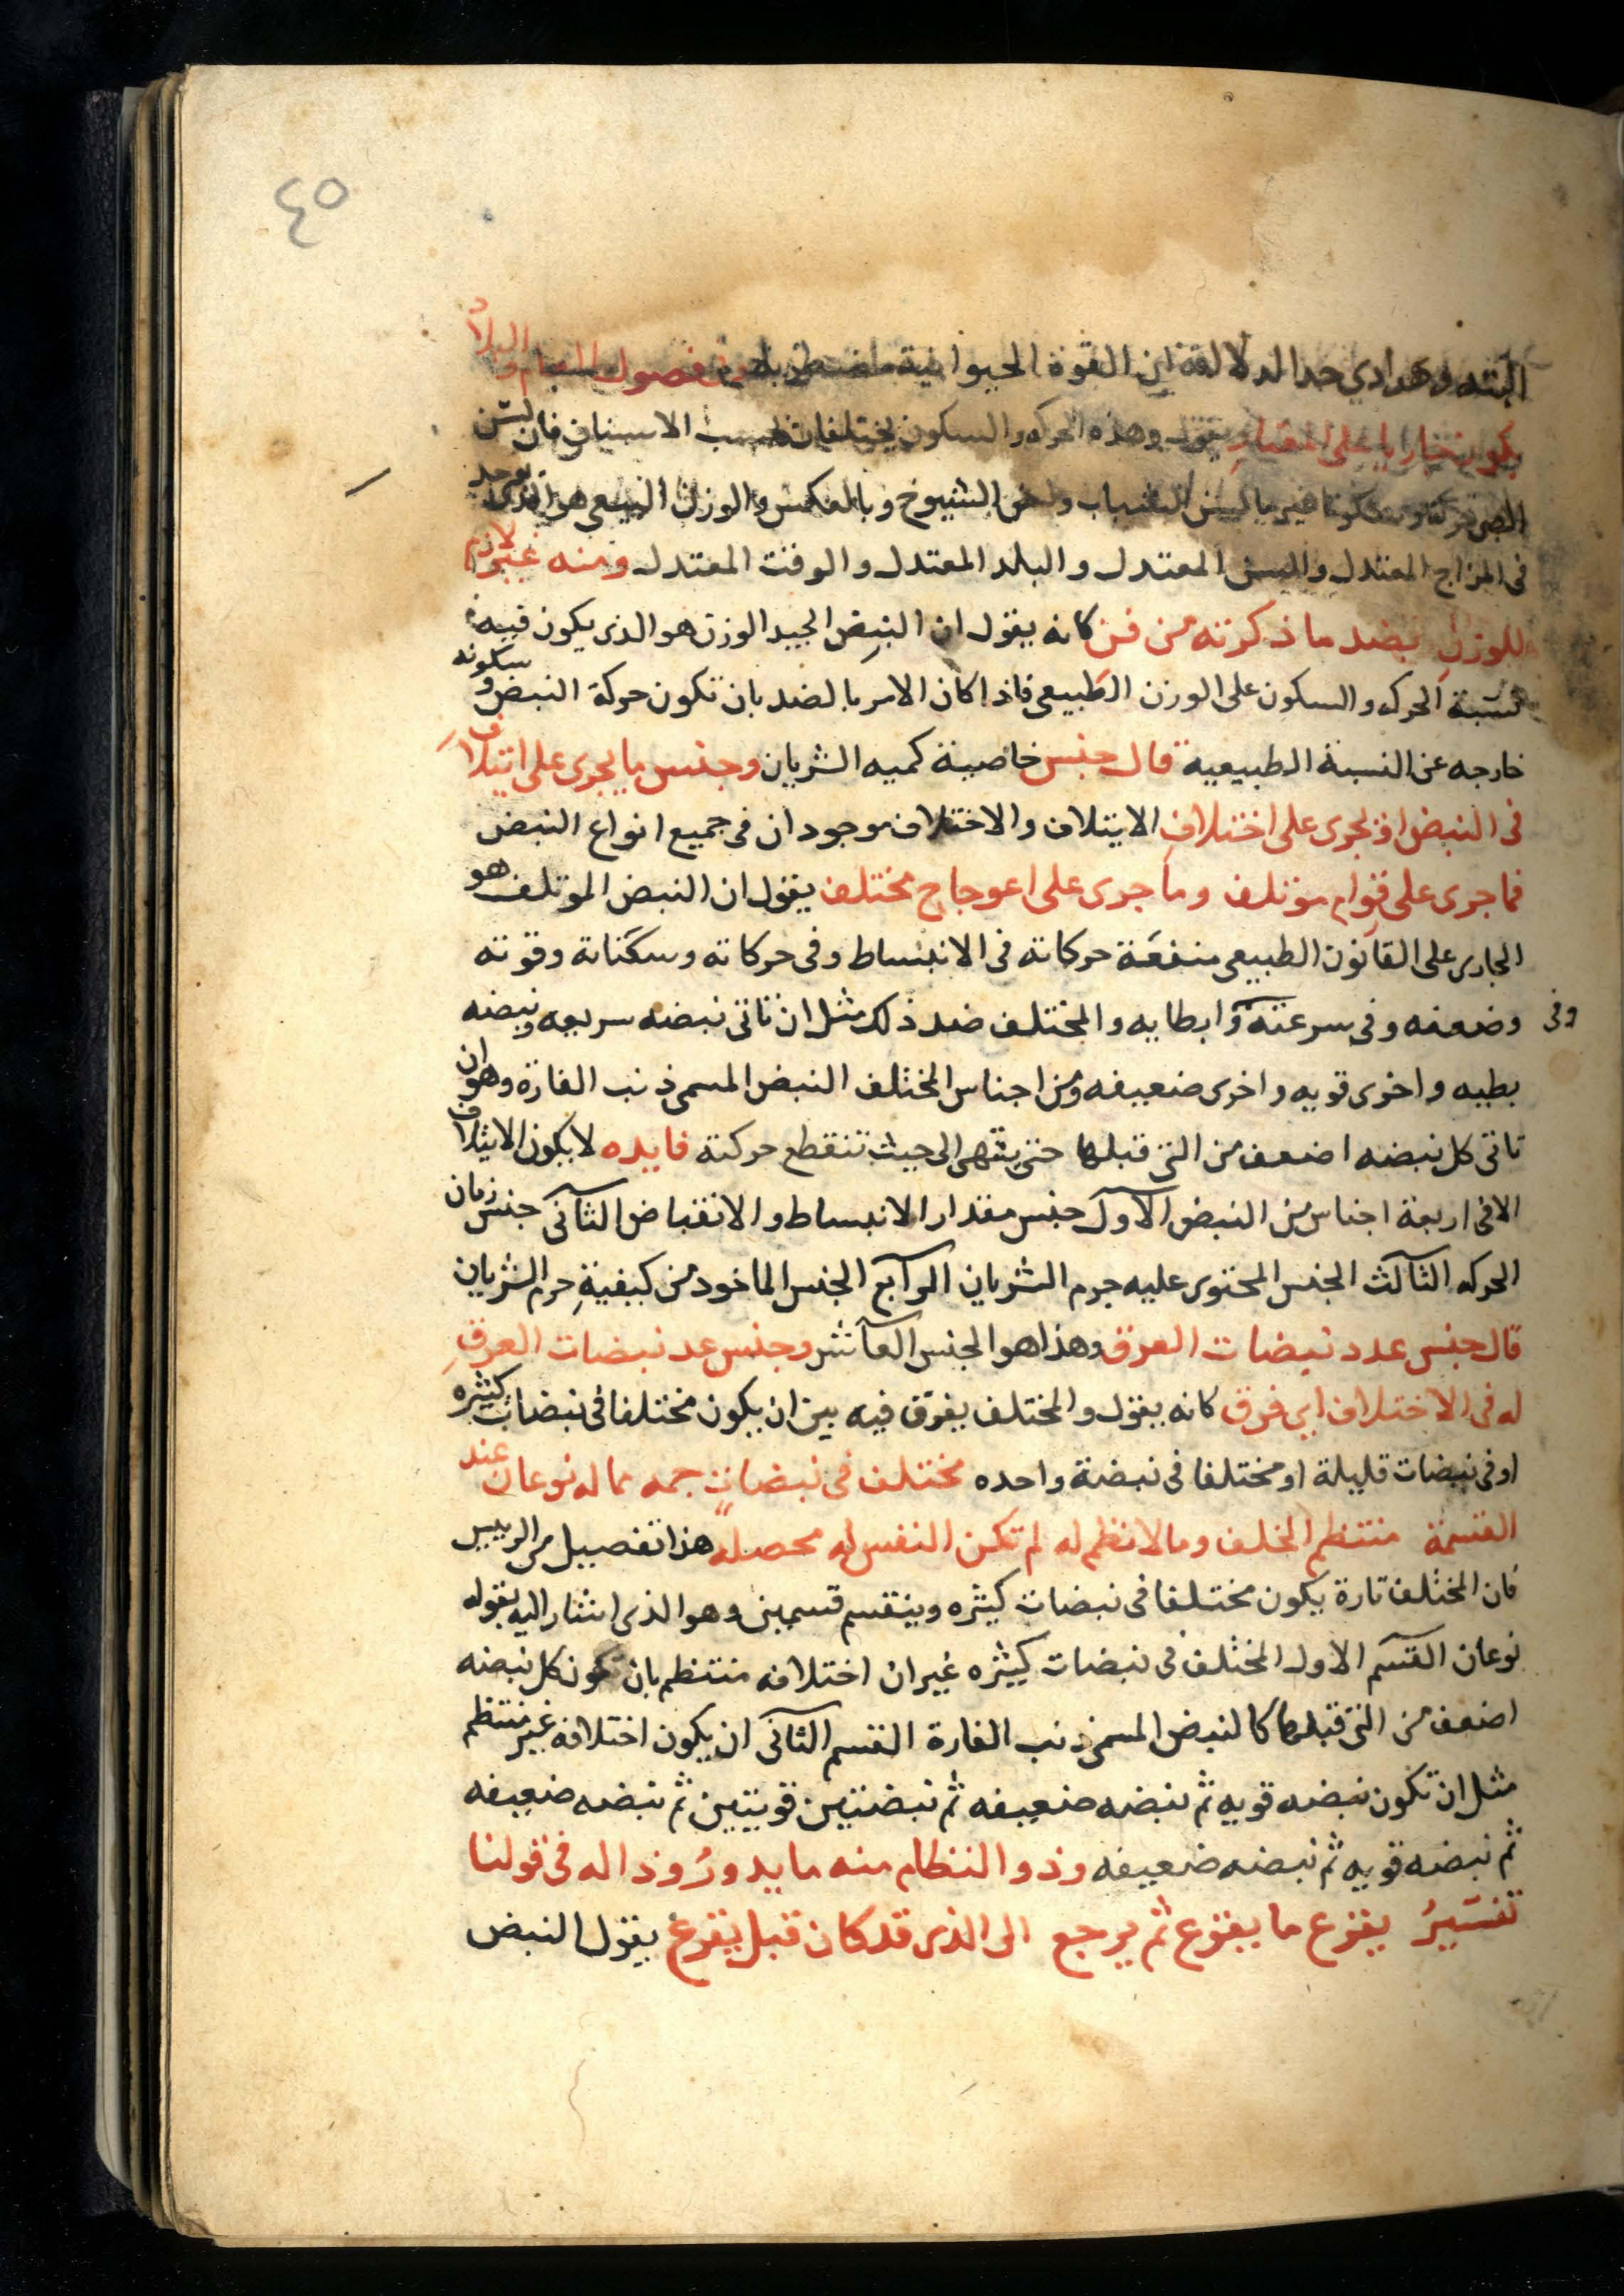 ٤٥
البته وهو ادي حد الدلالة ان القوة الحيوانية في فصول العام والبلاد
يكون جاريا على المقدار يقول وهذه الحركه والسكون يختلفان بحسب الاسنان فان لسن
الصبى حركة وسكونا غير ما لسن الشباب ولسن الشيوخ وبالعكس والوزن الطبيعى هو الذى يوجد
فى المزاج المعتدل والسن المعتدل والبلد المعتدل والوقت المعتدل ومنه غير لازم
للوزن بضد ما ذكرته من فن كانه يقول ان النبض الجيد الوزن هو الذى يكون فيه
نسبة الحركه والسكون على الوزن الطبيعى فاذا كان الامر بالضد بان تكون حركة النبض وسكونه
خارجه عن النسبة الطبيعية قال جنس خاصية كميه الشريان وجنس ما يجرى على ايتلاف
فى النبض او يجرى على اختلاف الايتلاف والاختلاف موجودان فى جميع انواع النبض
فما جرى على قوام موتلف وما جرى على اعوجاج مختلف يقول ان النبض الموتلف هو
الجارى على القانون الطبيعى منفعة حركاته فى الانبساط وفى حركاته وسكناته وقوته
وفى وضعفه وفى سرعته وابطايه والمختلف ضد ذلك مثل ان تاتى نبضه سريعه ونبضه
بطيه واخرى قويه واخرى ضعيفه ومن اجناس المختلف النبض المسمى ذنب الفارة وهو ان
تاتى كل نبضه اضعف من التى قبلها حتى ينتهى الى حيث تنقطع حركته فايده لا يكون الايتلاف
الا فى اربعة اجناس من النبض الاول جنس مقدار الانبساط والانقباض الثانى جنس زمان
الحركه الثالث الجنس المحتوى عليه جرم الشريان الرابع الجنس الماخود من كيفية جرم الشريان
قال جنس عدد نبضات العرق وهذا هو الجنس العاشر وجنس عد نبضات العرق
له فى الاختلاف اى فرق كانه يقول والمختلف يفرق فيه بين ان يكون مختلفا فى نبضات كثيره
او فى نبضات قليلة او مختلفا فى نبضة واحده مختلف فى نبضات جمه مما له نوعان عند
القسمة منتظم الخلف وما لا نظم له لم تكن النفس له محصله هذا تفصيل من الرييس
فان المختلف تارة يكون مختلفا فى نبضات كثيره وينقسم قسمين وهو الذى اشار اليه بقوله
نوعان القسم الاول المختلف فى نبضات كثيره غير ان اختلافه منتظم بان تكون كل نبضه
اضعف من التى قبلها كالنبض المسمى ذنب الفارة القسم الثانى ان يكون اختلافه غير منتظم
مثل ان تكون نبضه قويه ثم نبضه ضعيفه ثم نبضتين قويتين ثم نبضه ضعيفه
ثم نبضه قويه ثم نبضه ضعيفه وذو النظام منه ما يدور وذا له فى قولنا
تفسير يفزع ما يفزع ثم يرجع الى الذى قد كان قبل يفزع يقول النبض